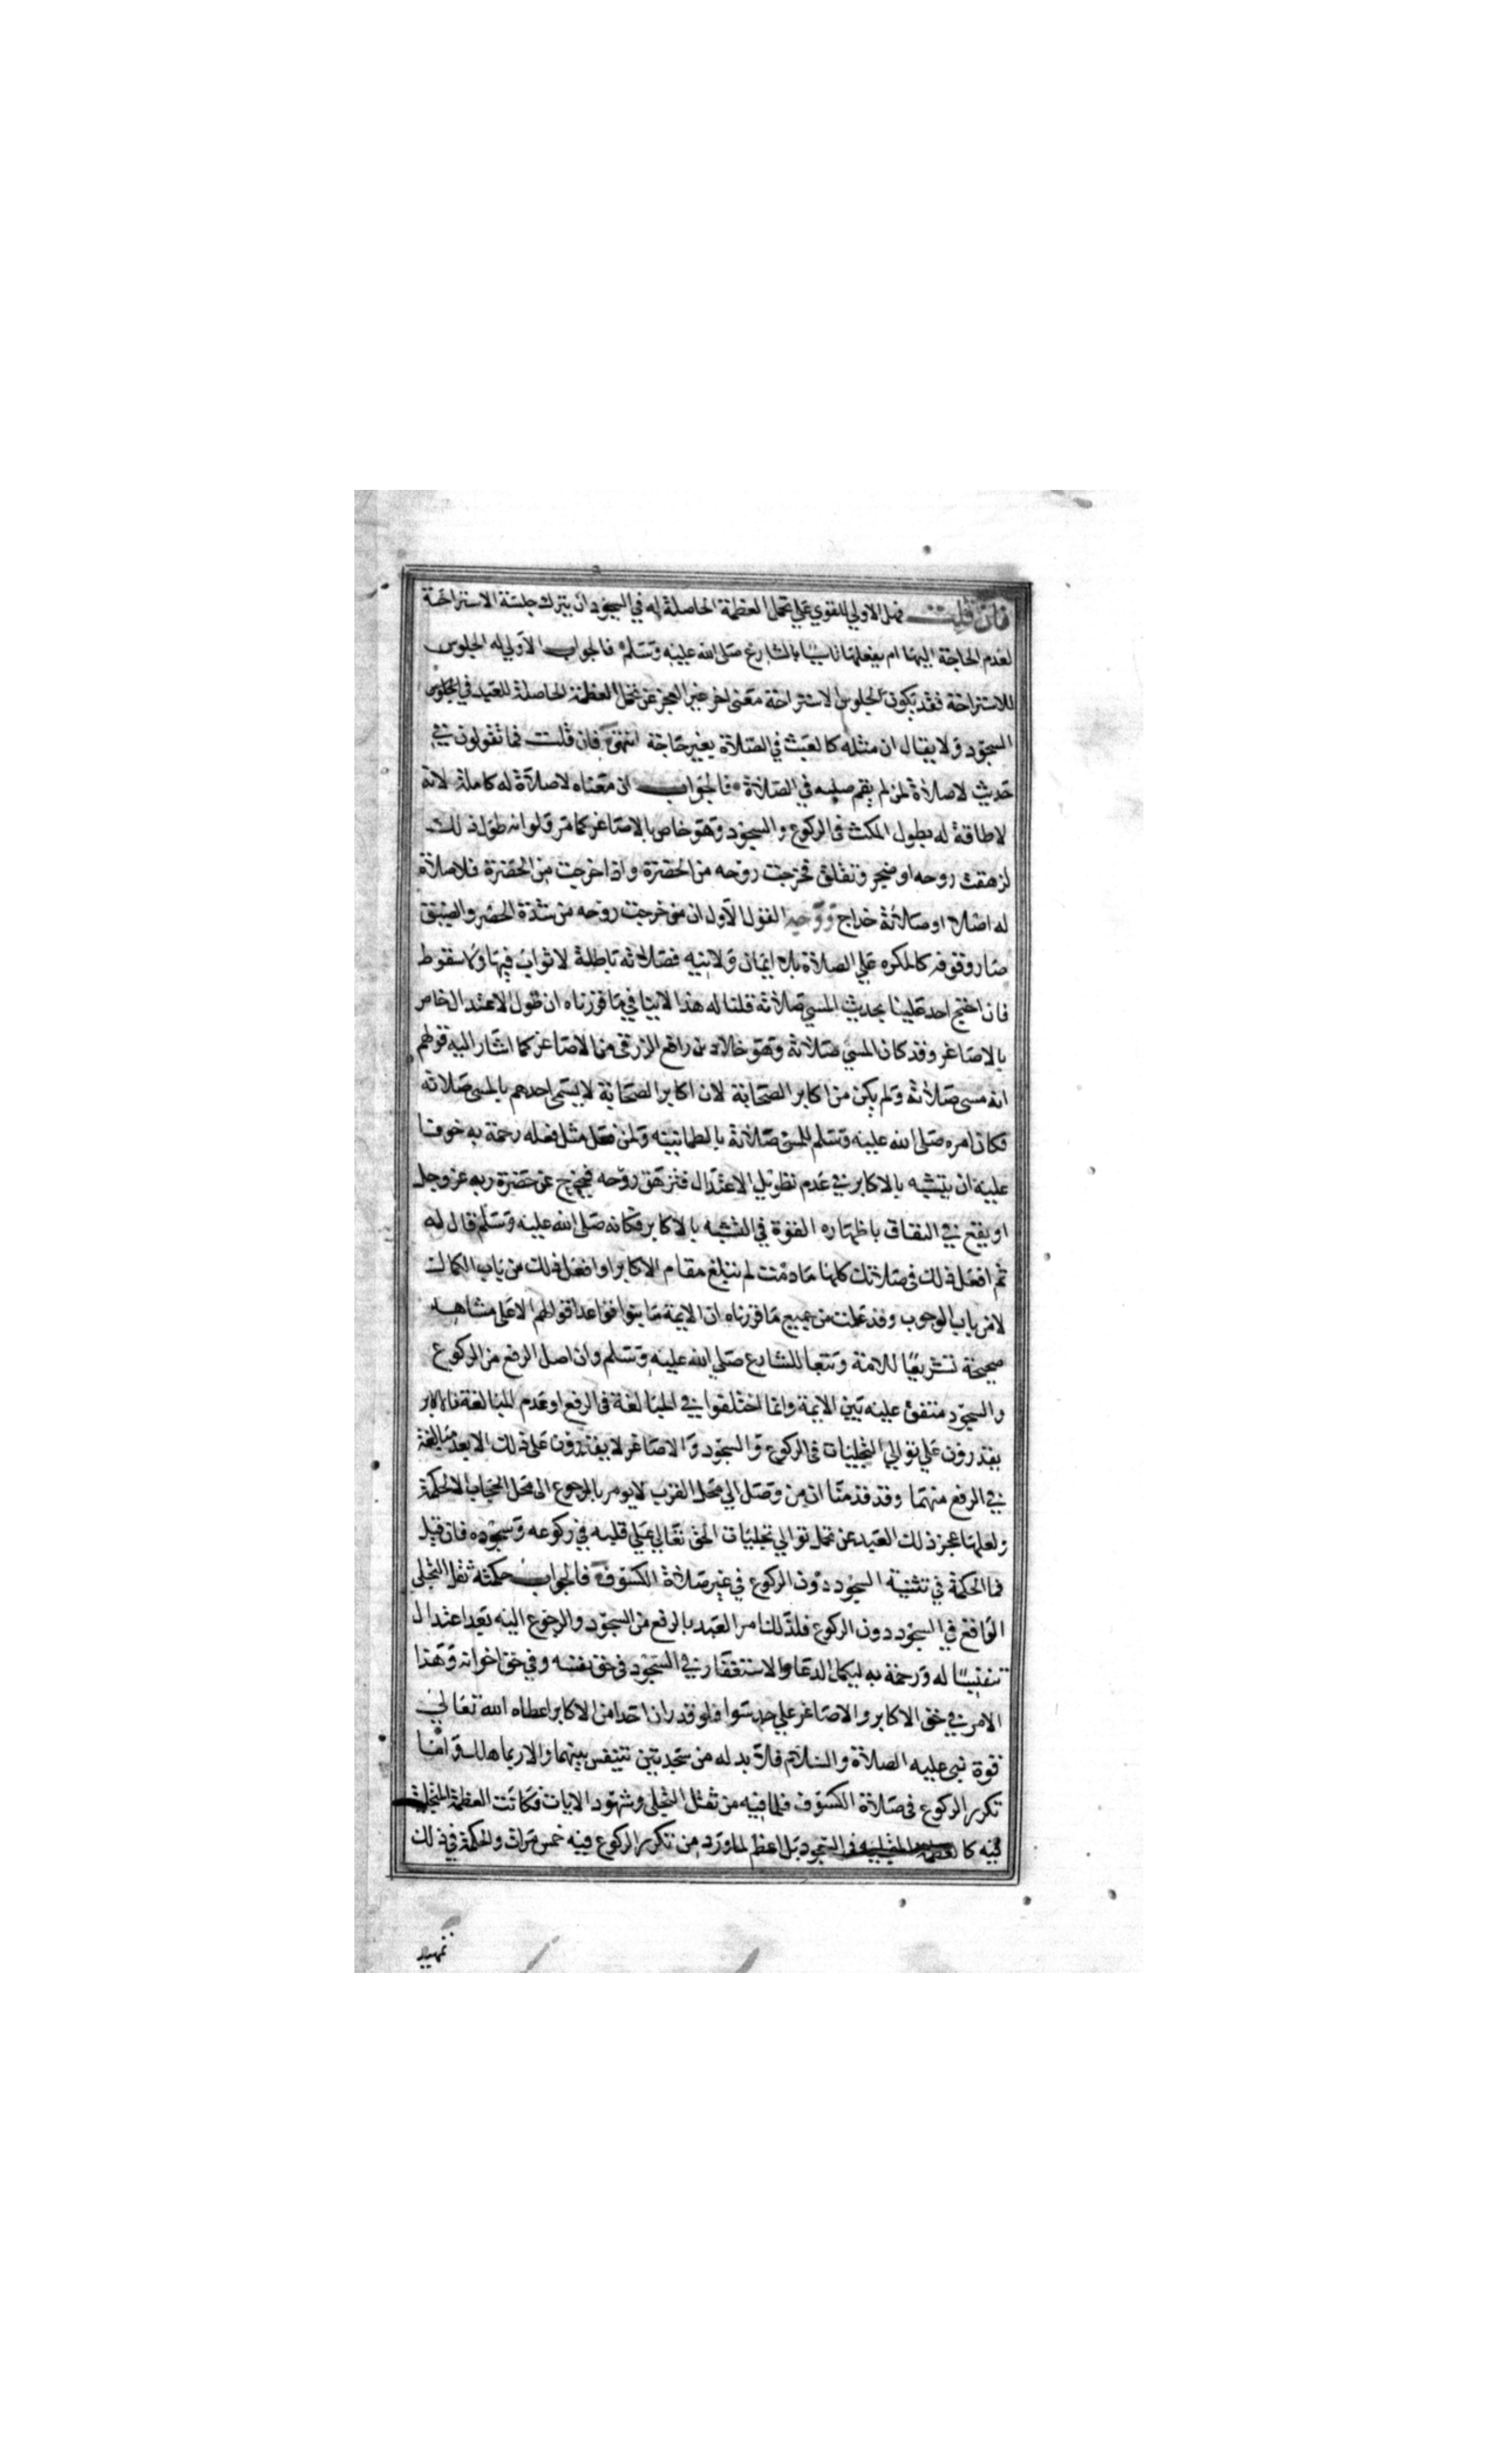 فان قلت فهل الاولي للقوي علي تحمل العظمة الحاصلة له في السجود ان يترك جلسة الاستراحة
لعدم الحاجة اليها ام يفعلها تاسيا بالشارع صلى الله عليه وسلم فالجواب الاولي له الجلوس
للاستراحة فقد يكون لجلوس الاستراحة معنى اخر غير العجز عن تحمل العظمة الحاصلة للعبد في الجلوس
السجود ولا يقال ان مثله كالعبث في الصلاة بغير حاجة انتهى فان قلت فما تقولون في
حديث لا صلاة لمن لم يقم صلبه في الصلاة فالجواب ان معناه لا صلاة له كاملة لانه
لا طاقة له بطول المكث في الركوع والسجود وهو خاص بالاصاغر كما مر ولو انه طول ذلك
لزهقت روحه او ضجر وتقلق فخرجت روحه من الحضرة واذا خرجت من الحضرة فلا صلاة
له اصلا او صلاته خداج ووجه القول الاول ان من خرجت روحه من شدة الحصر والضيق
صار وقوفه كالمكره علي الصلاة بلا ايمان ولا نيه فصلاته باطلة لا ثواب فيها ولا سقوط
فان احتج احد علينا بحديث المسي صلاته قلنا له هذا لا ينافي ما قررناه ان طول الاعتدال خاص
بالاصاغر وقد كان المسي صلاته وهو خلاد بن رافع الزرقي من الاصاغر كما اشار اليه قولهم
انه مسي صلاته ولم يكن من اكابر الصحابة لان اكابر الصحابة لا يسمى احدهم بالمسي صلاته
فكان امره صلى الله عليه وسلم للمسي صلاته بالطمانينه ولمن فعل مثل فعله رحمة به خوفا
عليه ان يتشبه بالاكابر في عدم تطويل الاعتدال فتزهق روحه فيخرج عن حضرة ربه عز وجل
او يقع في النفاق باظهاره القوة في التشبه بالاكابر فكانه صلى الله عليه وسلم قال له
ثم افعل ذلك في صلاتك كلها ما دمت لم تبلغ مقام الاكابر او افعل ذلك من باب الكمال
لا من باب الوجوب وقد علمت من جميع ما قررناه ان الايمة ما بنوا قواعد اقوالهم الا على مشاهد
صحيحة تشريعا للامة وتبعا للشارع صلي الله عليه وسلم وان اصل الرفع من الركوع
والسجود متفق عليه بين الايمة وانما اختلفوا في المبالغة في الرفع او عدم المبالغة فالاكابر
يقدرون علي توالي التجليات في الركوع والسجود والاصاغر لا يقدرون على ذلك الا بعد مبالغة
في الرفع منهما وقد قدمنا ان من وصل الي محل القرب لا يومر بالرجوع الى محل الحجاب الا لحكمة
ولعلها عجز ذلك العبد عن تحمل توالي تجليات الحق تعالي علي قلبه في ركوعه وسجوده فان قيل
فما الحكمة في تثنية السجود دون الركوع في غير صلاة الكسوف فالجواب حكمته ثقل التجلي
الواقع في السجود دون الركوع فلذلك امر العبد بالرفع من السجود والرجوع اليه بعد اعتدال
تنفيسا له ورحمة به ليكمل الدعا والاستغفار في السجود في حق نفسه وفي حق اخوانه وهذا
الامر في حق الاكابر والاصاغر علي حد سوا فلو قدر ان احدا من الاكابر اعطاه الله تعالي
قوة نبي عليه الصلاة والسلام فلا بد له من سجدتين يتنفس بينهما والا ربما هلك واما
تكرر الركوع في صلاة الكسوف فلما فيه من ثقل التجلي وشهود الايات فكانت العظمة المتجلية
فيه كالعظمة المتجلية في السجود بل اعظم لما ورد من تكرر الركوع فيه خمس مرات والحكمة في ذلك